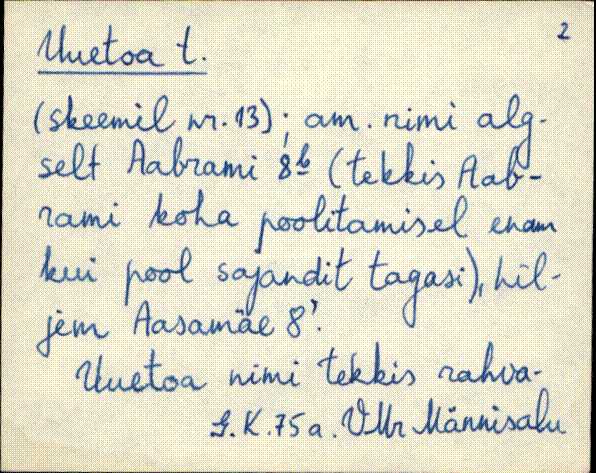 2
Uuetoa t.
(skeemil nr. 13); am. nimi alg-
selt Aabrami 8b (tekkis Aab-
rami koha poolitamisel enam
kui pool sajandit tagasi), hil-
jem Aasamäe 8'.
Uuetoa nimi tekkis rahva-
G.K. 75 a. VMr Männisalu